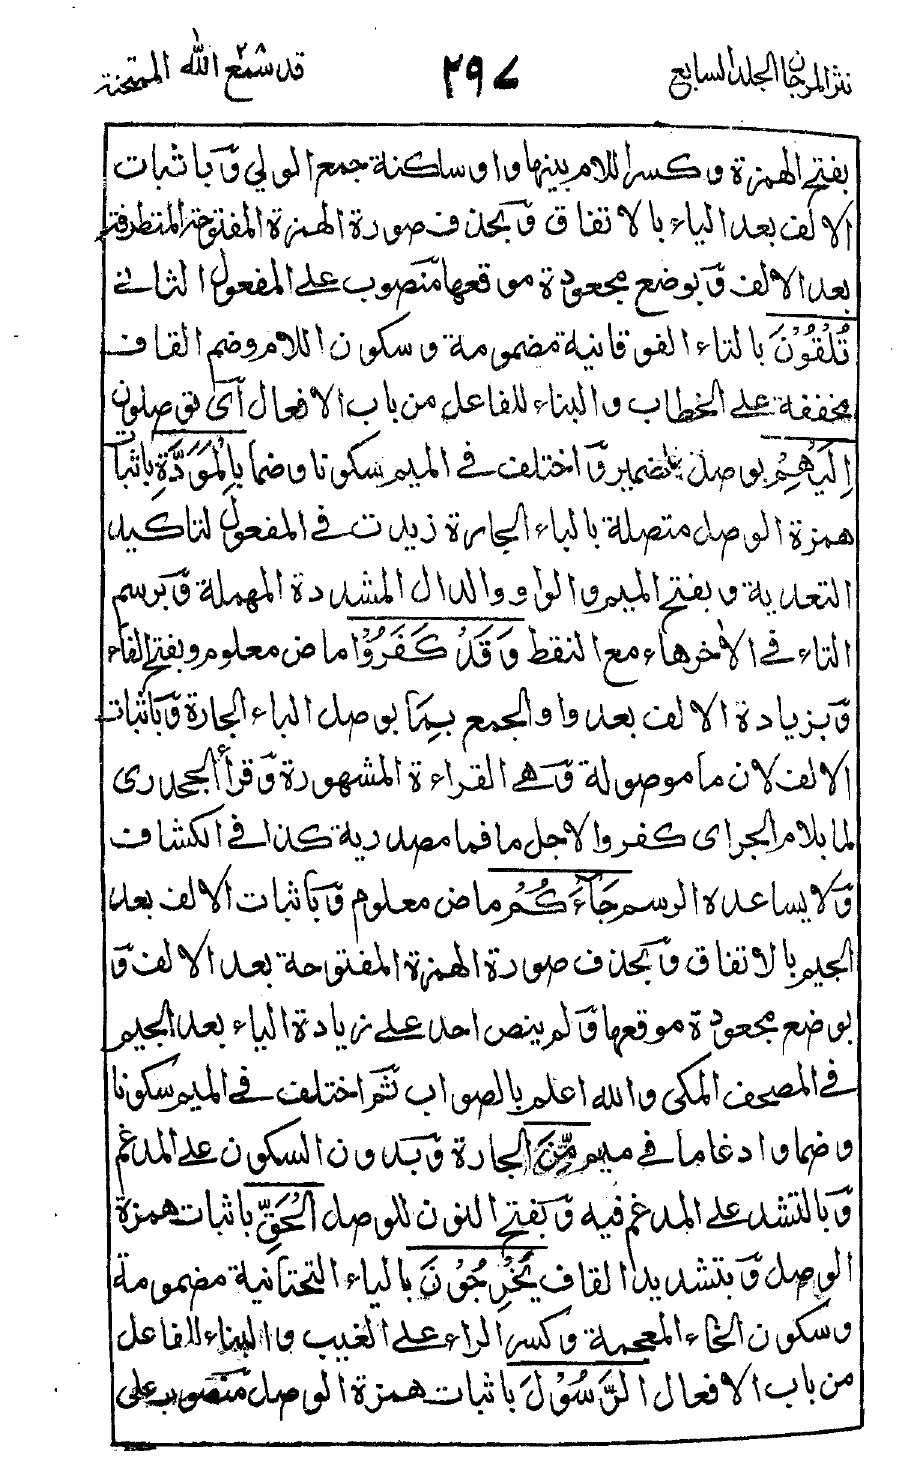 نثر المرجان الجلد السابع
٢٩٧
قد سمع الله ٢٨ الممتحنة
بفتح الهمزة وكسر اللام بينهما واو ساكنة جمع الولي وَباثبات
الالف بعد الياء بالاتفاق وَبحذف صورة الهمزة المفتوحة المتطرفة
بعد الالف وَبوضع مجعودة موقعها منصوب على المفعول الثاني
تُلْقُوْنَ بالتاء الفوقانية مضمومة وسكون اللام وضم القاف
مخففة على الخطاب والبناء للفاعل من باب الافعال اَى توصلون
اِلَيْهِمْ بوصل الضمير وَاختلف في الميم سكونا وضما بِالْمَوَدَّةِ باثبات
همزة الوصل متصلة بالباء الجارة زيدت في المفعول لتاكيد
التعدية وبفتح الميم والواو والدال المشددة المهملة وَبرسم
التاء في الاٰخر هاء مع النقط وَقَدْ كَفَرُوْا ماض معلوم وبفتح الفاء
وَبزيادة الالف بعد واو الجمع بِمَا بوصل الباء الجارة وَباثبات
الالف لان ما موصولة وَهي القراءة المشهورة وَقرأ الجحدرى
لما بلام الجر اى كفروا لاجل ما فما مصدرية كذا في الكشاف
وَلا يساعده الرسم جَآءَكُمْ ماض معلوم وَباثبات الالف بعد
الجيم بالاتفاق وَبحذف صورة الهمزة المفتوحة بعد الالف وَ
بوضع مجعودة موقعها وَلم ينص احد على زيادة الياء بعد الجيم
في المصحف المكى والله اعلم بالصواب ثم اختلف في الميم سكونا
وضما وادغاما في ميم مِّنَ الجارة وَبدون السكون على المدغم
وَبالتشد على المدغم فيه وَبفتح النون للوصل الْحَقِّ باثبات همزة
الوصل وَبتشديد القاف يُخْرِجُوْنَ بالياء التحتانية مضمومة
وسكون الخاء المعجمة وكسر الراء على الغيب والبناء للفاعل
من باب الافعال الرَّسُوْلَ باثبات همزة الوصل منصوب على